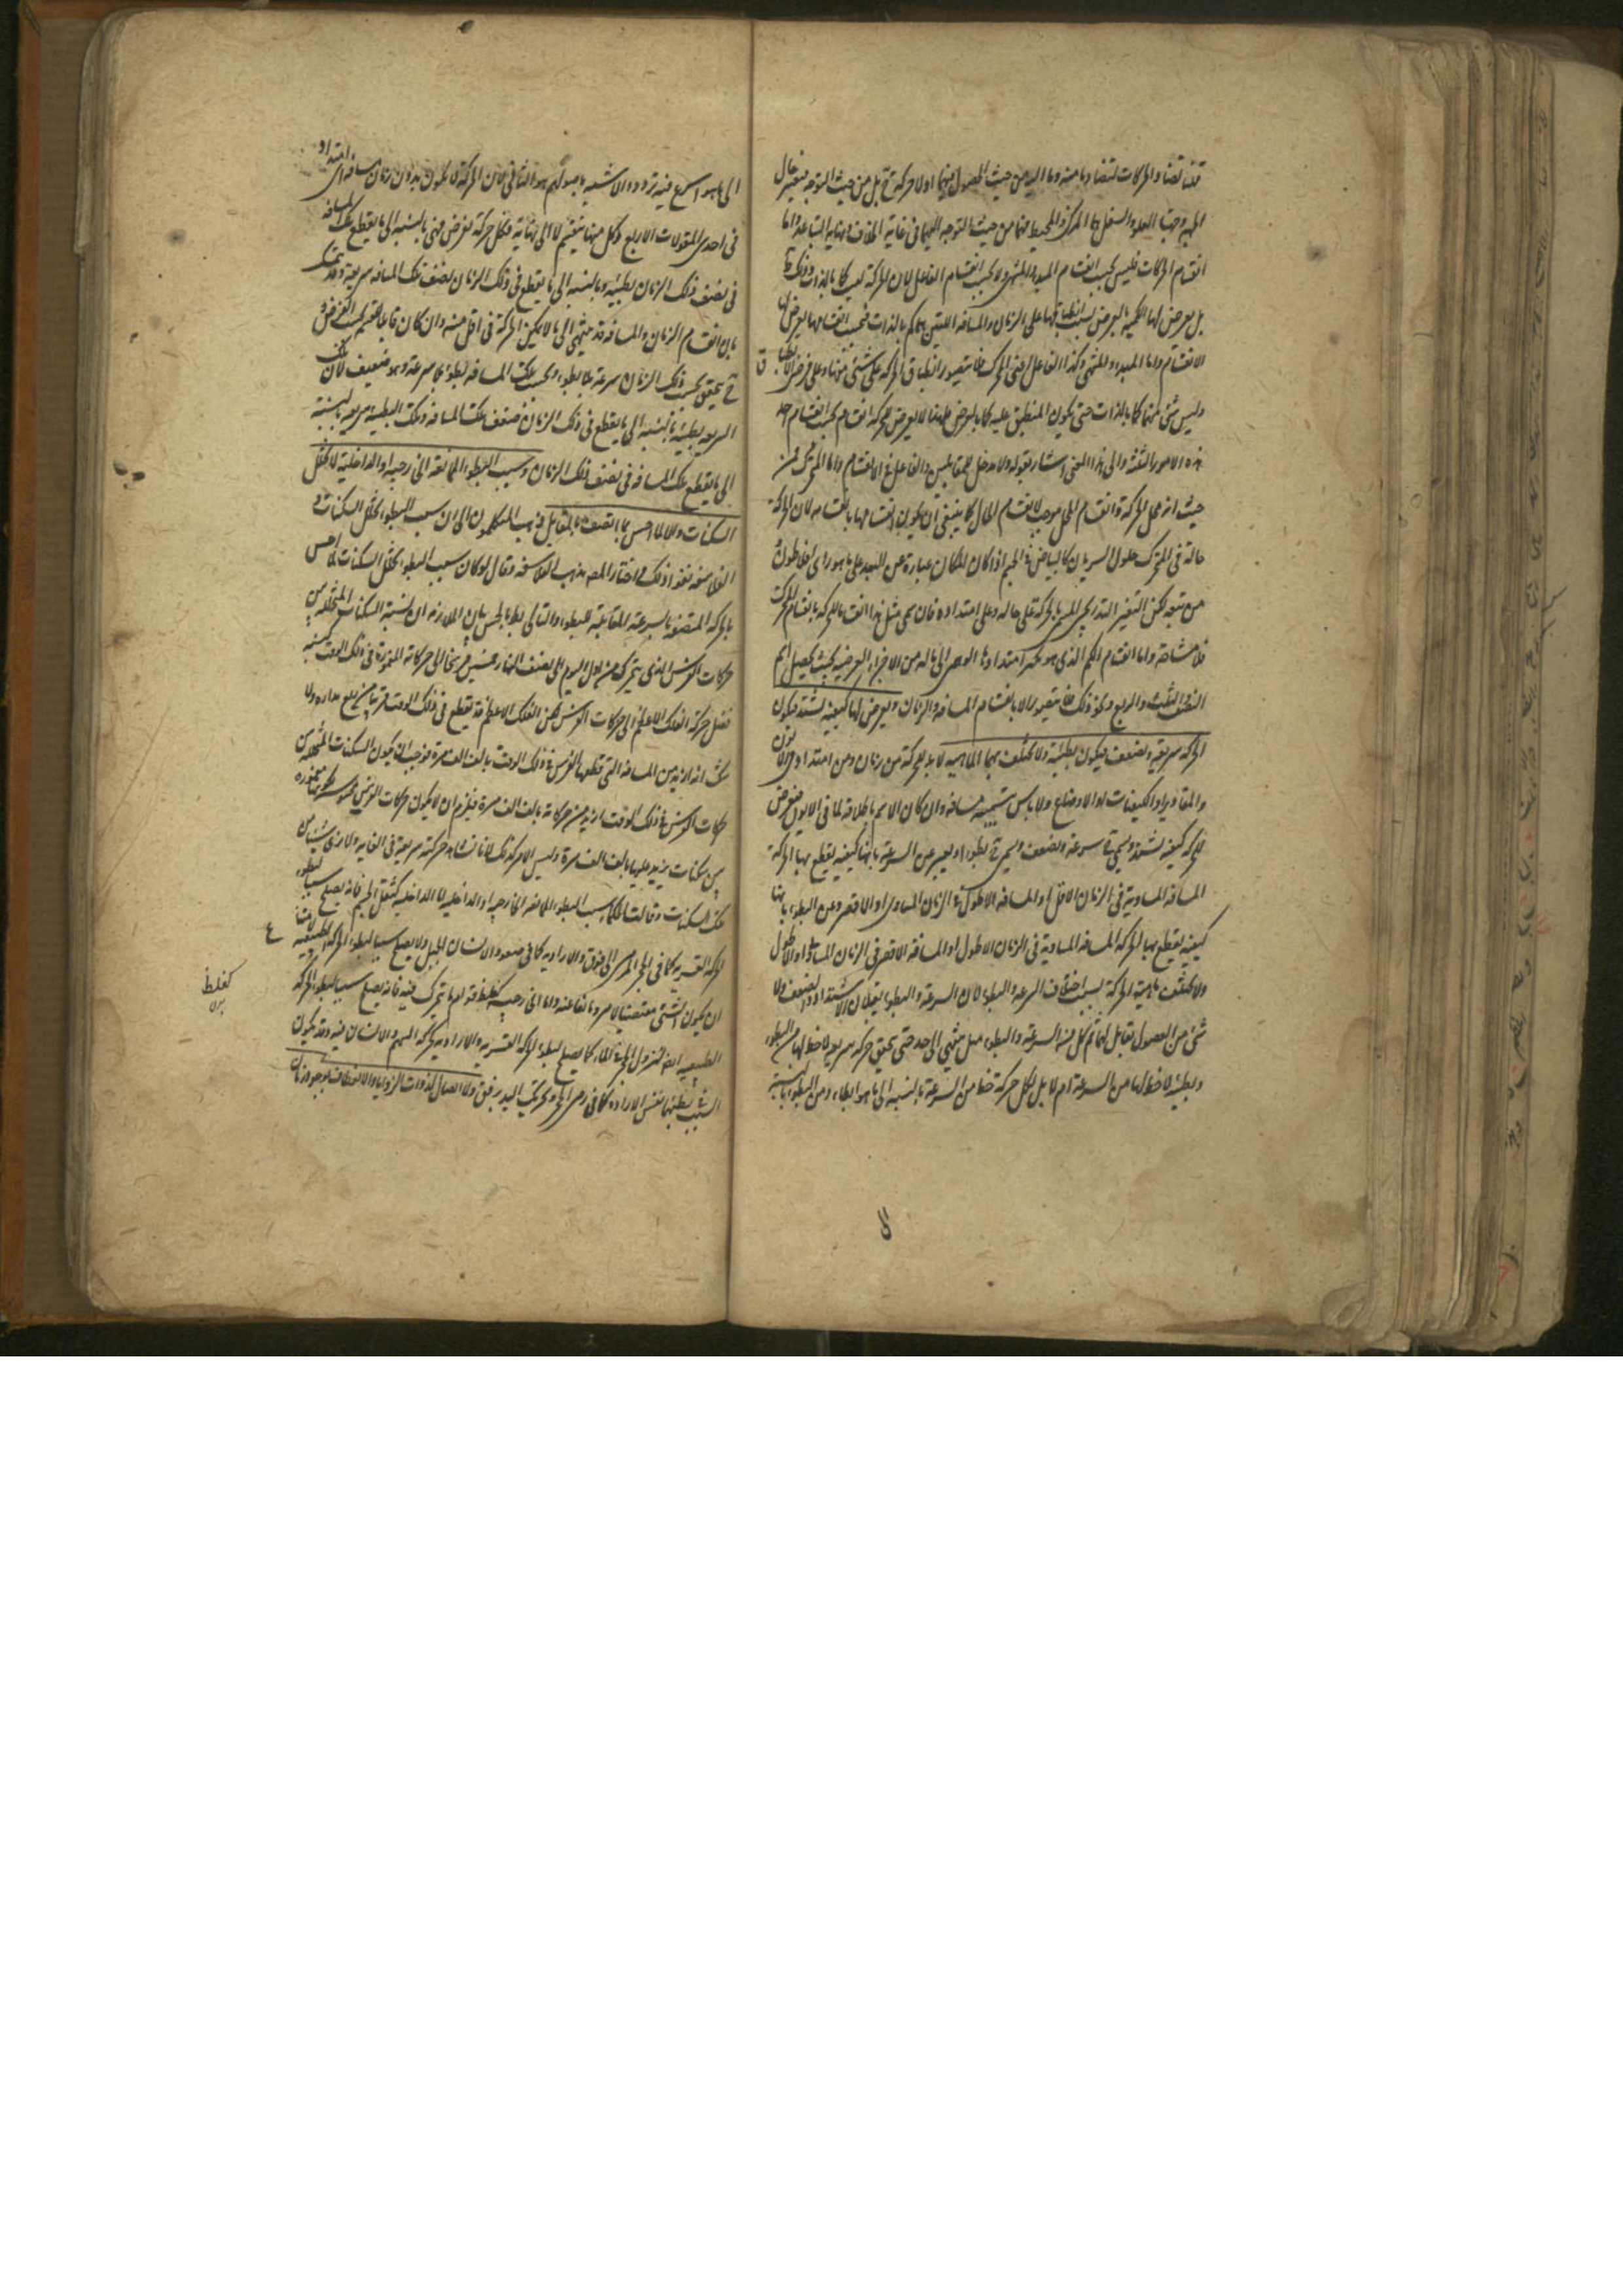 قلنا تضاد الحركات لتضاد ما منه وما اليه من حيث الحصول فيهما اولا حركة ح بل من حيث التوجه فتغير حال
الجهة وجهتا العلو والسفل اى المركز والمحيط فهما من حيث التوجه اليهما فى غاية الخلاف ونهاية التباعد واما
انقسام الحركات فليس بحسب انقسام المبدء والمنتهى ولا بحسب انقسام الفاعل لان الحركة ليس كما بالذات وذلك
بل يعرض لها الكمية بالعرض بسبب انطباقها على الزمان والمسافة اللتين هما كم بالذات فبحسب انقسامهما يعرض لها
الانقسام واما المبدء والمنتهى وكذا الفاعل اعنى المحرك فلا يتصور انطباق الحركة على شئ منها وعلى فرض الانطباق
وليس شئ منها كما بالذات حتى يكون المنطبق عليه كما بالعرض فلهذا لا يعرض للحركة انقسام بحسب انقسام احد
هذه الامور الثلثة والى هذا المعنى اشار بقوله ولا مدخل للمتقابلين والفاعل فى الانقسام واما المتحرك فمن
حيث انه محل الحركة وانقسام المحل موجب لانقسام الحال كما ينبغى ان يكون انقسامها بانقسامه لان الحركة
حالة فى المتحرك حلول السريان كالبياض فى الجسم اذا كان المكان عبارة عن البعد على ما هو راى افلاطون
من تبعه لكن التغير التدريجى المسمى بالحركة على حاله وعلى امتداده فان سمى مثل هذا انقساما للحركة بانقسام المتحرك
فلا مشاحة واما انقسام الكم الذى هو بحسب امتدادها الوهمى الى ماله من الاجزاء الفرضية بحيث يحصل لها
النصف والثلث والربع ونحو ذلك فلا يتصور الا بانقسام المسافة والزمان ويعرض لها كيفية تشتد فيكون
الحركة سريعة وتضعف فيكون بطيئة ولا تختلف بهما الماهية لا بد للحركة من زمان ومن امتداد فى الايون
والمقادير او الكيفيات او الاوضاع ولا باس بتسميته مسافة وان كان الاسم باطلاقه لما فى الايون فيعرض
للحركة كيفية تشتد ويسمى ح سرعة وتضعف ويسمى ح بطوء او يعبر عن السرعة بانها كيفية يقطع بها الحركة
المسافة المساوية فى الزمان الاقل او المسافة الاطول فى الزمان المساوى او الاقصر وعن البطوء بانها
كيفية يقطع بها الحركة المسافة المساوية فى الزمان الاطول او المسافة الاقصر فى الزمان المساوى او الاطول
ولا تختلف ماهية الحركة بسبب اختلاف السرعة والبطوء لان السرعة والبطوء يقبلان الاشتداد والضعف ولا
شئ من الفصول بقابل لهما ثم كل من السرعة والبطوء هل ينتهى الى حد حتى يتحقق حركة سريعة لا حظ لها من البطوء
وبطيئة لا حظ لها من السرعة ام لا بل لكل حركة حظ من السرعة بالنسبة الى ما هو ابطاء ومن البطوء بالنسبة
الى ما هو اسرع فيه تردد والاشبه باصولهم هو الثانى لان الحركة لا تكون بدون زمان ومسافة اى امتداد
فى احدى المقولات الاربع وكل منهما ينقسم لا الى نهاية فكل حركة تفرض فهى بالنسبة الى ما يقطع تلك المسافة
فى نصف ذلك الزمان بطيئة وبالنسبة الى ما يقطع فى ذلك الزمان نصف تلك المسافة سريعة وقد يتمسك
بان انقسام الزمان والمسافة قد ينتهى الى ما لا يمكن الحركة فى اقل منه وان كان قابلا للقسمة بحسب الفرض و
ح يتحقق بحسب ذلك الزمان سرعة بلا بطوء وبحسب تلك المسافة بطوء بلا سرعة وهو ضعيف لان تلك
السريعة بطيئة بالنسبة الى ما يقطع فى ذلك الزمان ضعف تلك المسافة وتلك البطيئة سريعة بالنسبة
الى ما يقطع تلك المسافة فى نصف ذلك الزمان وسبب البطوء الممانعة الخارجية او الداخلية لا تخلل
السكنات والا لما احس بما اتصف بالمقابل ذهب المتكلمون الى ان سبب البطوء تخلل السكنات و
الفلاسفة نفوا ذلك واختار المص مذهب الفلاسفة فقال لو كان سبب البطوء تخلل السكنات لما احس
بالحركة المتصفة بالسرعة المقابلة للبطوء والتالى بط بالحس بيان الملازمة ان نسبة السكنات المتخللة بين
حركات الفرس الذى يتحرك من اول اليوم الى نصف النهار خمسين فرسخا الى حركاته المتحيزة فى ذلك الوقت كنسبة
فضل حركة الفلك الاعظم الى حركات الفرس لكن الفلك الاعظم قد يقطع فى ذلك الوقت قريبا من ربع مداره ولا
شك انه ازيد من المسافة التى قطعها الفرس فى ذلك الوقت بالف الف مرة فوجب ان يكون السكنات المتخللة بين
حركات الفرس فى ذلك الوقت ازيد من حركاته بالف الف مرة فيلزم ان لا يكون حركات الفرس محسوسة لكونها مغمورة
بين سكنات يزيد عليها بالف الف مرة وليس الامر كذلك لانا نشاهد حركته سريعة فى الغاية ولا نرى شيئا من
تلك السكنات وقالت الحكماء سبب البطوء الممانعة الخارجية او الداخلية اما الداخلية كثقل الجسم فانه يصلح سببا لبطوء
الحركة القسرية كما فى الحجر المرمى الى فوق والارادية كما فى صعود الانسان الجبل ولا يصلح سببا لبطوء الحركة الطبيعية لامتناع
ان يكون الشئ مقتضيا لامر ومانعا عنه واما الخارجية كغلظ قوام ما يتحرك فيه فانه يصلح سببا لبطوء الحركة
الطبيعية ايضا كنزول الحجر فى الماء كما يصلح لبطوء الحركة القسرية والارادية كحركة السهم والانسان فيه وقد يكون
السبب لبطئها نفس الارادة كما فى رمى الحجر وتحريك اليد برفق ولا اتصال لذوات الزوايا والانعطاف لوجود زمان
كغلظ
الى